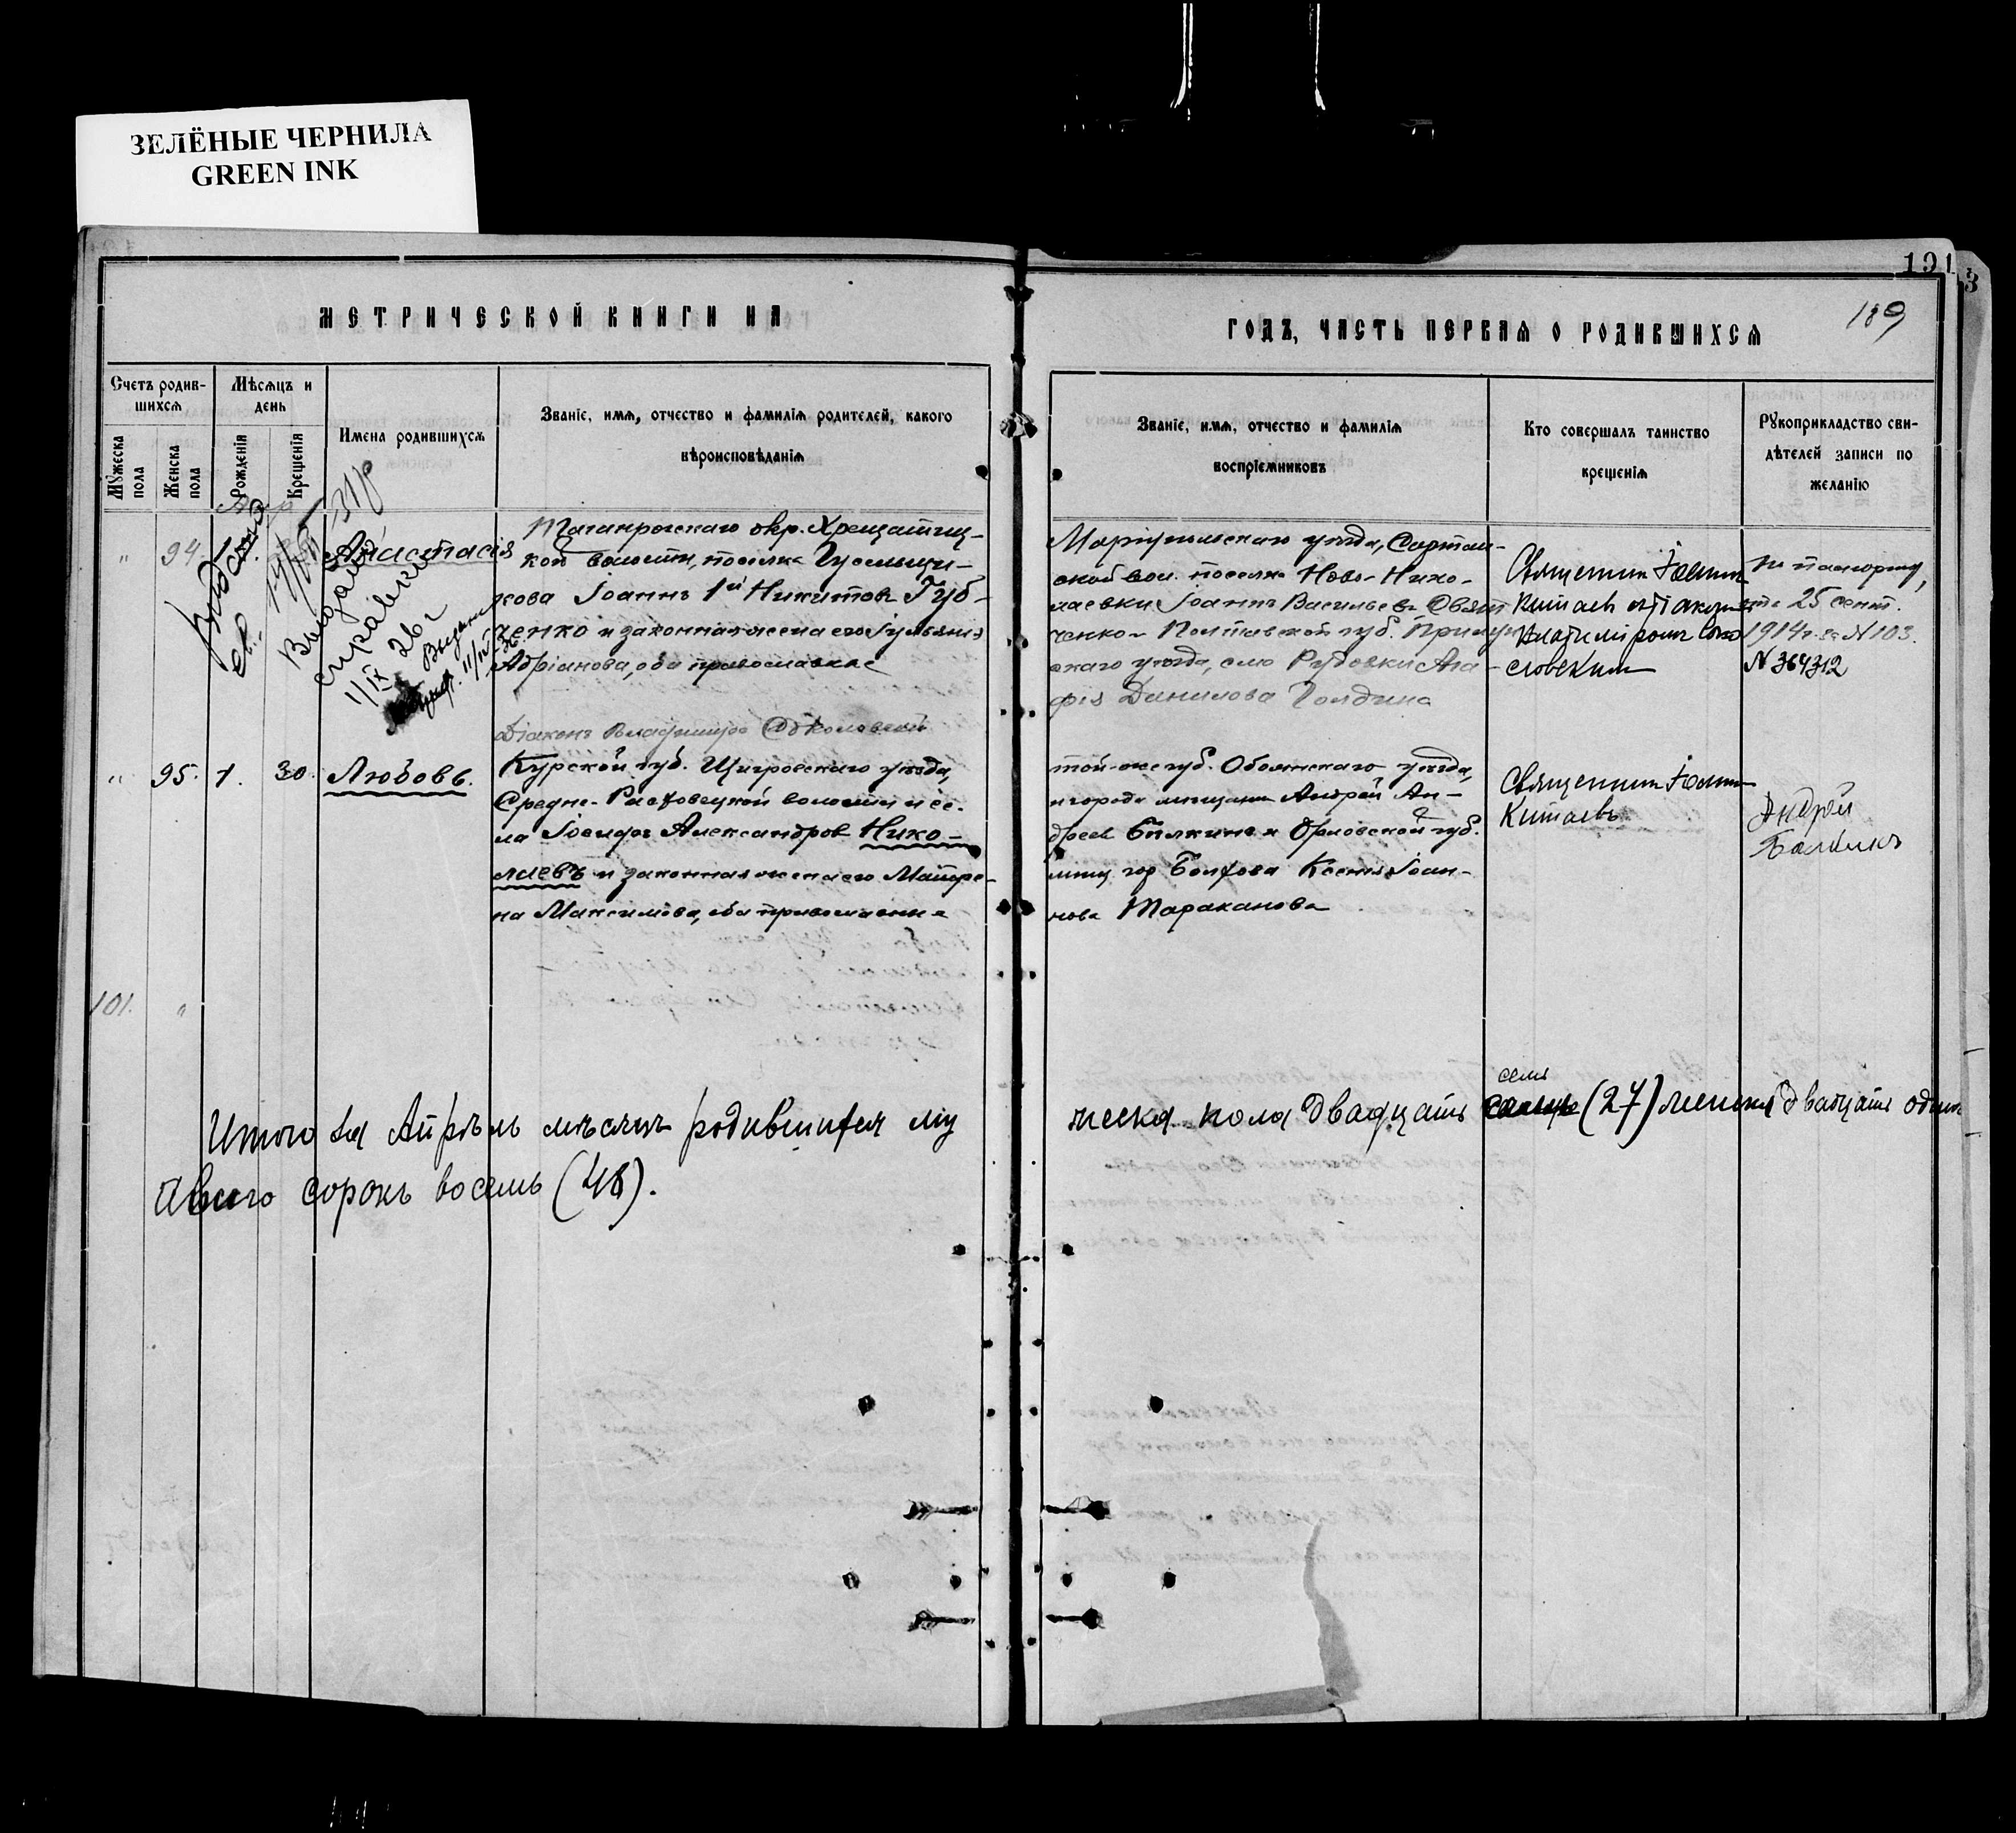 ЗЕЛЁНЫЕ ЧЕРНИЛА
GREEN INK
191
3
189
МЕТРИЧЕСКОЙ КНИГИ НА
ГОДЪ, ЧАСТЬ ПЕРВАЯ О РОДИВШИХСЯ
Счетъ родив-
шихся
Мужеска
пола
Женска
пола
Мѣсяцъ и
день
Рожденія
Крещенія
Имена родившихся
Званіе, имя, отчество и фамилія родителей, какого
вѣроисповѣданія
Званіе, имя, отчество и фамилія
воспріемниковъ
Кто совершалъ таинство
крещенія
Рукоприкладство сви-
дѣтелей записи по
желанію
" 94.
Анастасія
Выдано
св.
Выдано
справка
11/IX 26 г
Выдана
11/IV-36.
Таганрогскаго окр. Хрещатиц-
кой волости, поселка Гусельщи-
кова Іоаннъ 1й Никитовъ Губ-
ченко и законная жена его Гульянія
Адріанова, оба православные
Діаконъ Владимиръ Соколовскій
Маріупольскаго уѣзда, Сартан-
ской вол. поселка Ново-Нико-
лаевки Іоаннъ Васильевъ Овят
ченко и Полтавской губ. Прилук
скаго уѣзда, села Рудовки Ага-
фія Данилова Голдина
Священникъ Іоаннъ
Китаевъ
Владиміромъ Соко
ловскимъ
По паспорту,
25 сент.
1914 г. за N 103.
N 364312
" 95. 1. 30. Любовь.
Курской губ. Щигровскаго уѣзда,
Средне-Расховецкой волости и се-
ла Іосифъ Александровъ Нико-
лаевъ и законная жена его Матре-
на Максимова, оба православные
той-же губ. Обоянскаго уѣзда,
и города мѣщанинъ Андрей Ан-
дреевъ Балкинъ и Орловской губ.
мѣщ. гор Болхова Ксенія Іоан-
нова Тараканова
Священникъ Іоаннъ
Китаевъ
Андрей
Балкинъ
101. "
Итого за Апрѣль мѣсяцъ родившихся му
жеска пола двадцать семь (27) женска двадцать одна
А всего сорокъ восемь (48).